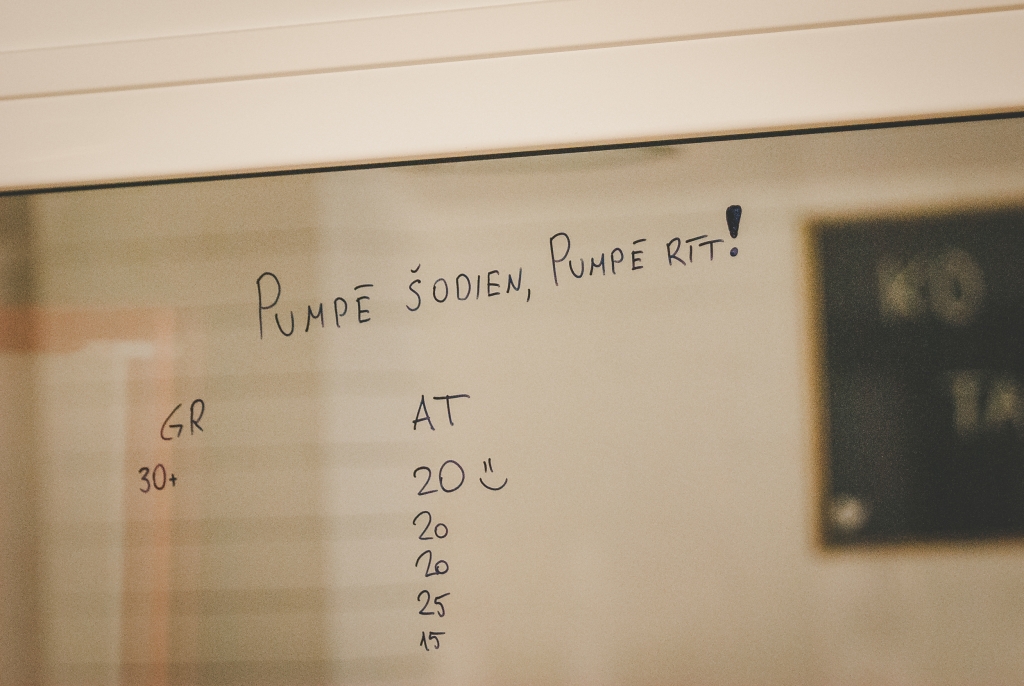 PUMPĒ ŠODIEN, PUMPĒ RĪT!
GR AT
30+ 20 :)
20
20
25
15
KO